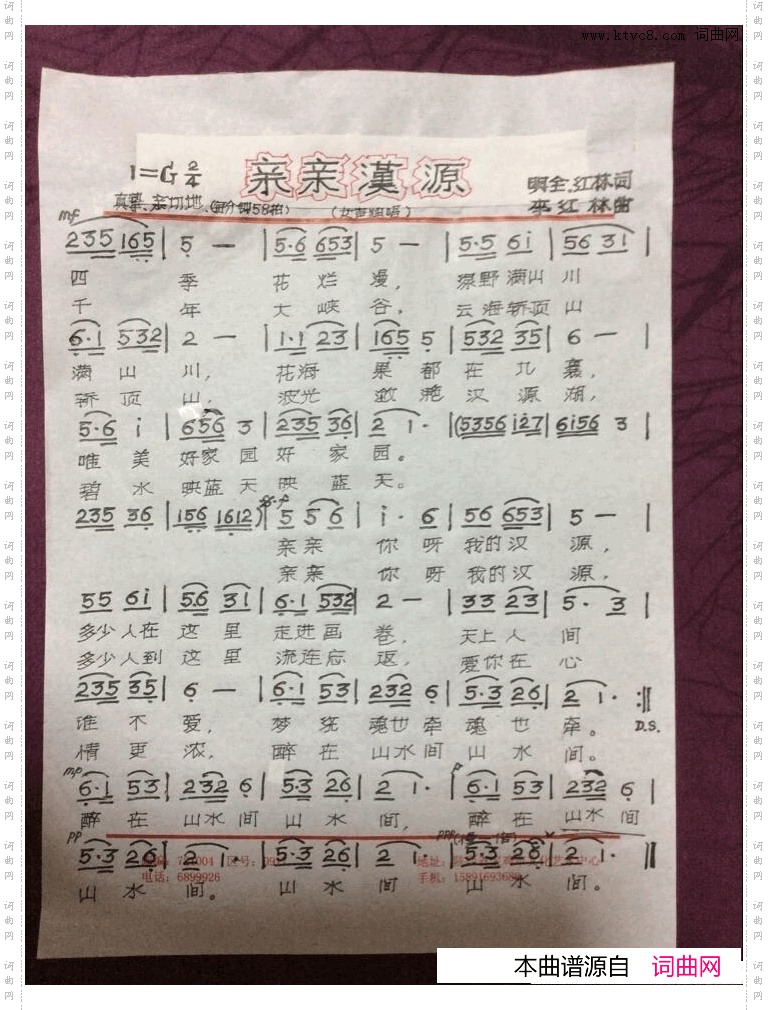 www.ktvc8.com 词曲网
亲亲漢源
1=G 2/4
真挚、亲切地 (每分钟58拍)
(女声独唱)
明全、红林词
李红林曲
mf
235 165 | 5 — | 5·6 653 | 5 — | 5·5 6i | 56 31 |
四 季 花 烂 漫, 绿野满山 川
千 年 大 峡 谷, 云海轿顶 山
6·1 532 | 2 — | 1·1 23 | 165 5 | 532 35 | 6 — |
满 山 川, 花海 果 都 在 九 襄,
轿 顶 山, 波光 潋 滟 汉 源 湖,
5·6 i | 656 3 | 235 36 | 2 1· | (5356 i27 | 6i56 3 |
唯 美 好家 园 好 家 园。
碧 水 映蓝 天 映 蓝 天。
235 36 | 156 1612) | 5 5 6 | i · 6 | 56 653 | 5 — |
亲亲 你 呀 我的汉 源,
亲亲 你 呀 我的汉 源,
55 6i | 5.6 31 | 6·1 532 | 2 — | 33 23 | 5· 3 |
多少 人在 这 里 走进画 卷, 天上 人 间
多少 人到 这 里 流连忘 返, 爱你在 心
235 35 | 6 — | 6·1 53 | 232 6 | 5·3 26 | 2 1· :||
谁 不 爱, 梦 绕 魂也 牵 魂 也 牵。 D.S.
情 更 浓, 醉 在 山水间 山 水 间。
mp
p
6·1 53 | 232 6 | 5·3 26 | 2 1· | 6·1 53 | 232 6 |
醉 在 山水 间 山 水 间, 醉 在 山水 间
pp
5·3 26 | 2 1· | 5·3 26 | 2 1· | 5·3 26 | 2 1· ||
电话: 6899926
手机:
山 水 间。 山 水 间 山 水 间。
本曲谱源自 词曲网